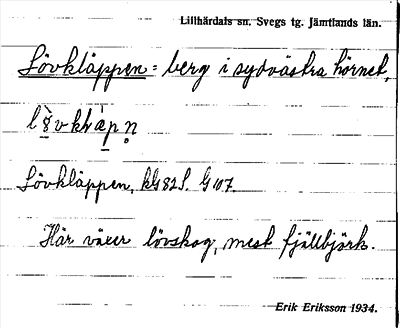 Lillhärdals sn. Svegs tg. Jämtlands län.
Lövkläppen = berg i sydvästra hörnet,
Lövkläppen,
Här växer lövskog, mest fjällbjörk.
Erik Eriksson 1934.